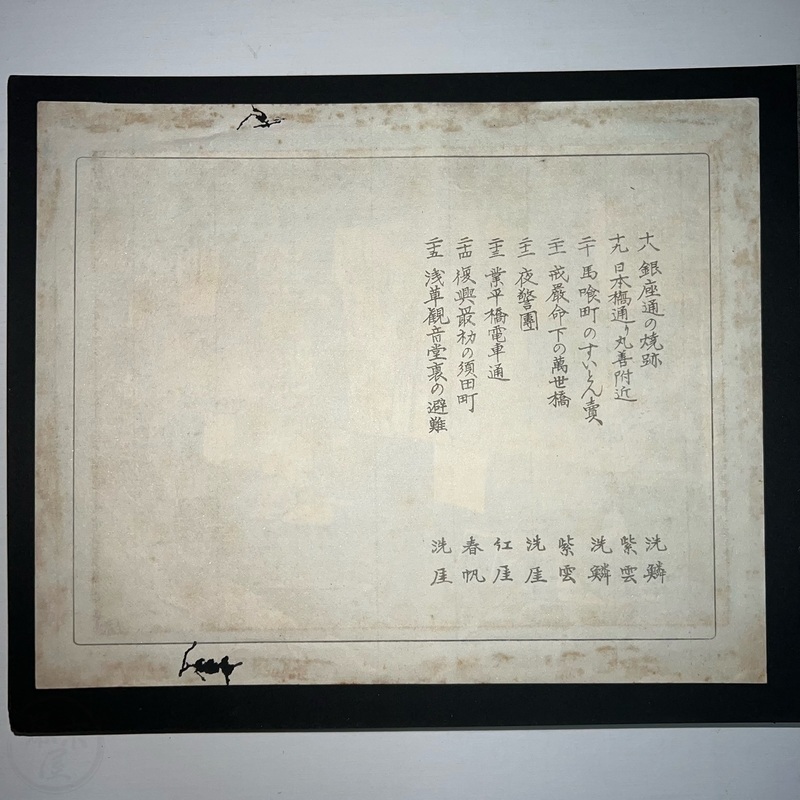 十八 銀座通の焼跡 洗鱗
十九 日本橋通り丸善附近 紫雲
二十 馬喰町のすいとん賣 洗鱗
二十一 戒厳命下の萬世橋 紫雲
二十二 夜警團 洗厓
二十三 業平橋電車通 紅厓
二十四 復興最初の須田町 春帆
二十五 浅草観音堂裏の避難 洗厓